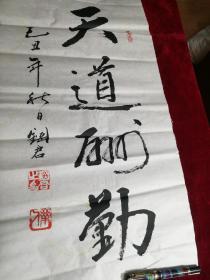 天道酬勤
己丑年秋日